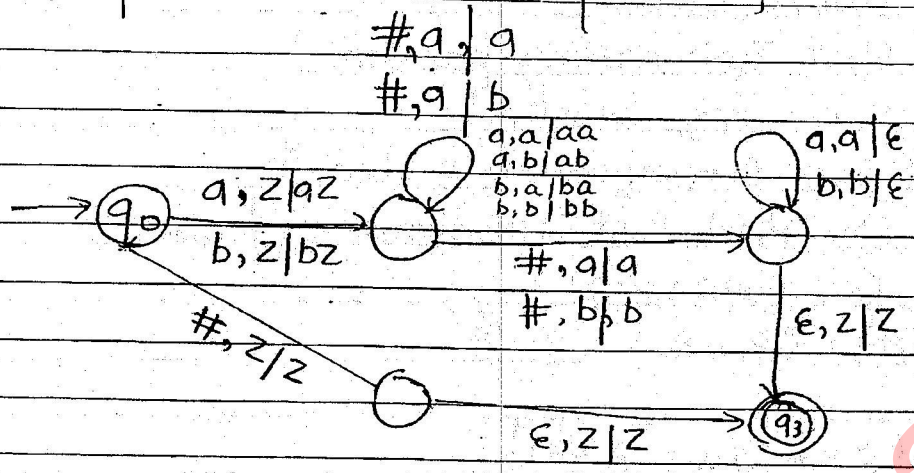 #,a,|a
#,a|b
a,a|aa
a,b|ab
b,a|ba
b,b|bb
a,a|ε
b,b|ε
a, Z|aZ
q0
b, Z|bZ
#, a|a
#, b|b
ε, Z|Z
#, Z/Z
ε, Z|Z
q3